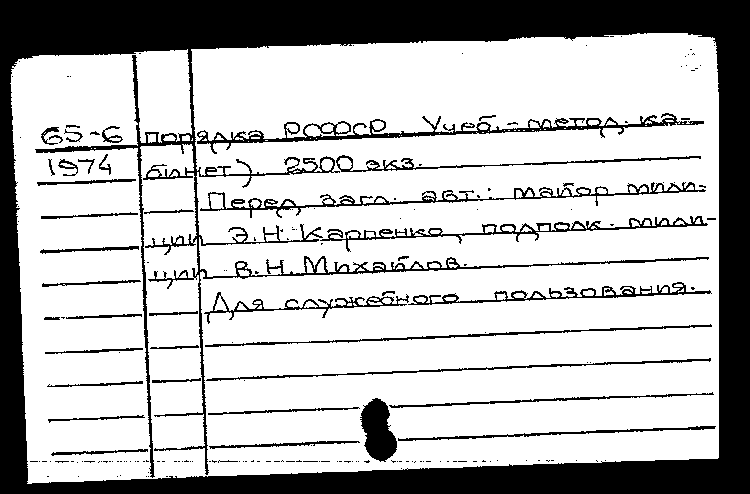 65-6 порядка РСФСР. Учеб.-метод. ка-
1974 бинет). 2500 экз.
Перед загл. авт.: майор мили-
ции Э.Н. Карпенко, подполк. мили-
ции В.Н. Михайлов.
Для служебного пользования.